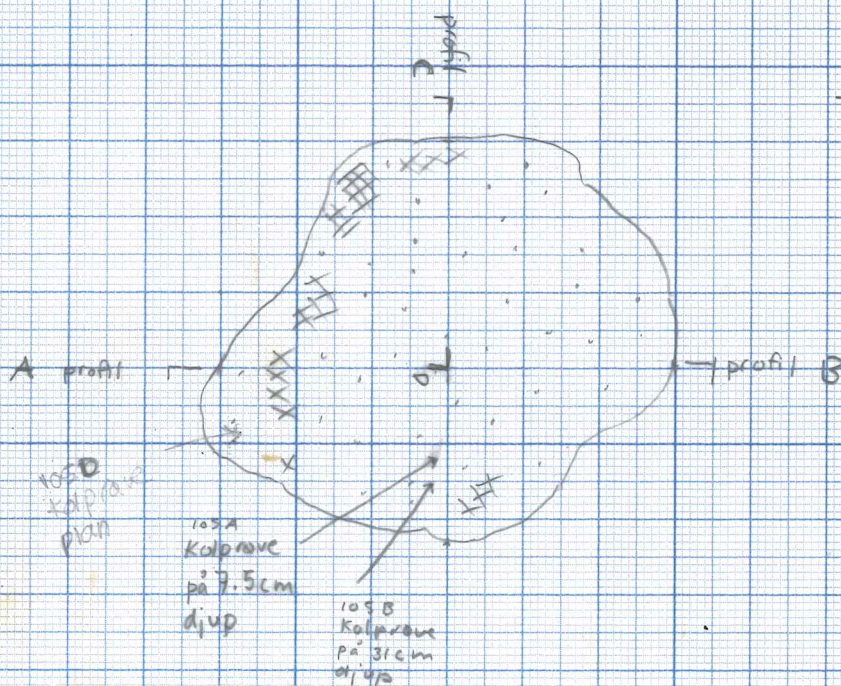 profil C
A profil
profil B
105D
kolprove
plan
105A
Kolprove
på 7.5cm
djup
105B
Kolprove
på 31cm
djup